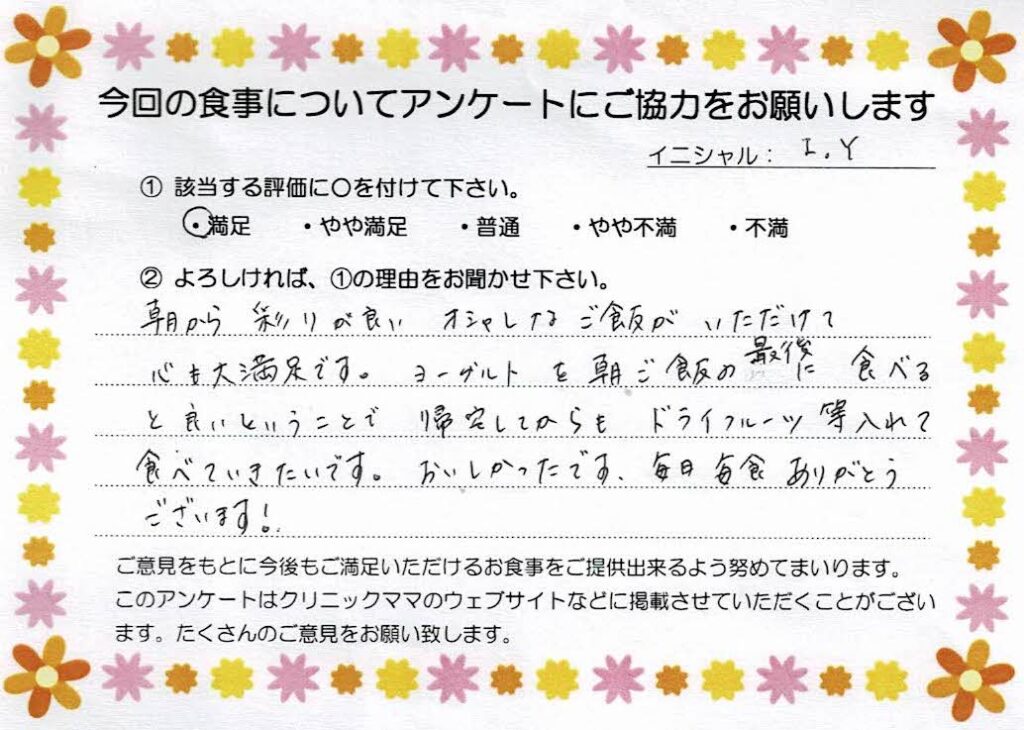 今回の食事についてアンケートにご協力をお願いします
イニシャル： I.Y
① 該当する評価に〇を付けて下さい。
・満足 ・やや満足 ・普通 ・やや不満 ・不満
② よろしければ、①の理由をお聞かせ下さい。
朝から 彩りが良い オシャレなご飯が いただけて
心も大満足です。 ヨーグルト を 朝ご飯の最後に 食べる
と良いということで 帰宅してからも ドライフルーツ等入れて
食べていきたいです。 おいしかったです、毎日毎食ありがとう
ございます！
ご意見をもとに今後もご満足いただけるお食事をご提供出来るよう努めてまいります。
このアンケートはクリニックママのウェブサイトなどに掲載させていただくことがござい
ます。たくさんのご意見をお願い致します。